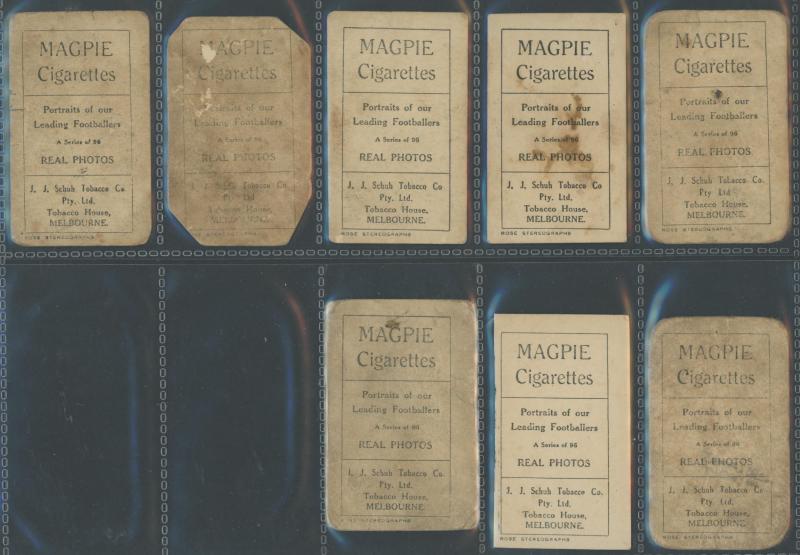 MAGPIE
Cigarettes
Portraits of our
Leading Footballers
A Series of 96
REAL PHOTOS
J. J. Schuh Tobacco Co
Pty. Ltd.
Tobacco House,
MELBOURNE.
ROSE STEREOGRAPHS
MAGPIE
Cigarettes
Portraits of our
Leading Footballers
A Series of 96
REAL PHOTOS
J. J. Schuh Tobacco Co
Pty. Ltd.
Tobacco House,
MELBOURNE.
ROSE STEREOGRAPHS
MAGPIE
Cigarettes
Portraits of our
Leading Footballers
A Series of 96
REAL PHOTOS
J. J. Schuh Tobacco Co.
Pty. Ltd.
Tobacco House,
MELBOURNE.
ROSE STEREOGRAPHS
MAGPIE
Cigarettes
Portraits of our
Leading Footballers
A Series of 96
REAL PHOTOS
J. J. Schuh Tobacco Co.
Pty. Ltd.
Tobacco House,
MELBOURNE.
ROSE STEREOGRAPHS
MAGPIE
Cigarettes
Portraits of our
Leading Footballers
A Series of 96
REAL PHOTOS
J. J. Schuh Tobacco Co.
Pty. Ltd.
Tobacco House,
MELBOURNE.
ROSE STEREOGRAPHS
MAGPIE
Cigarettes
Portraits of our
Leading Footballers
A Series of 96
REAL PHOTOS
J. J. Schuh Tobacco Co.
Pty. Ltd.
Tobacco House,
MELBOURNE.
STEREOGRAPHS
MAGPIE
Cigarettes
Portraits of our
Leading Footballers
A Series of 96
REAL PHOTOS
J. J. Schuh Tobacco Co.
Pty. Ltd.
Tobacco House,
MELBOURNE.
ROSE STEREOGRAPHS
MAGPIE
Cigarettes
Portraits of our
Leading Footballers
A Series of 96
REAL PHOTOS
J. J. Schuh Tobacco Co
Pty. Ltd.
Tobacco House,
MELBOURNE.
ROSE STEREOGRAPHS